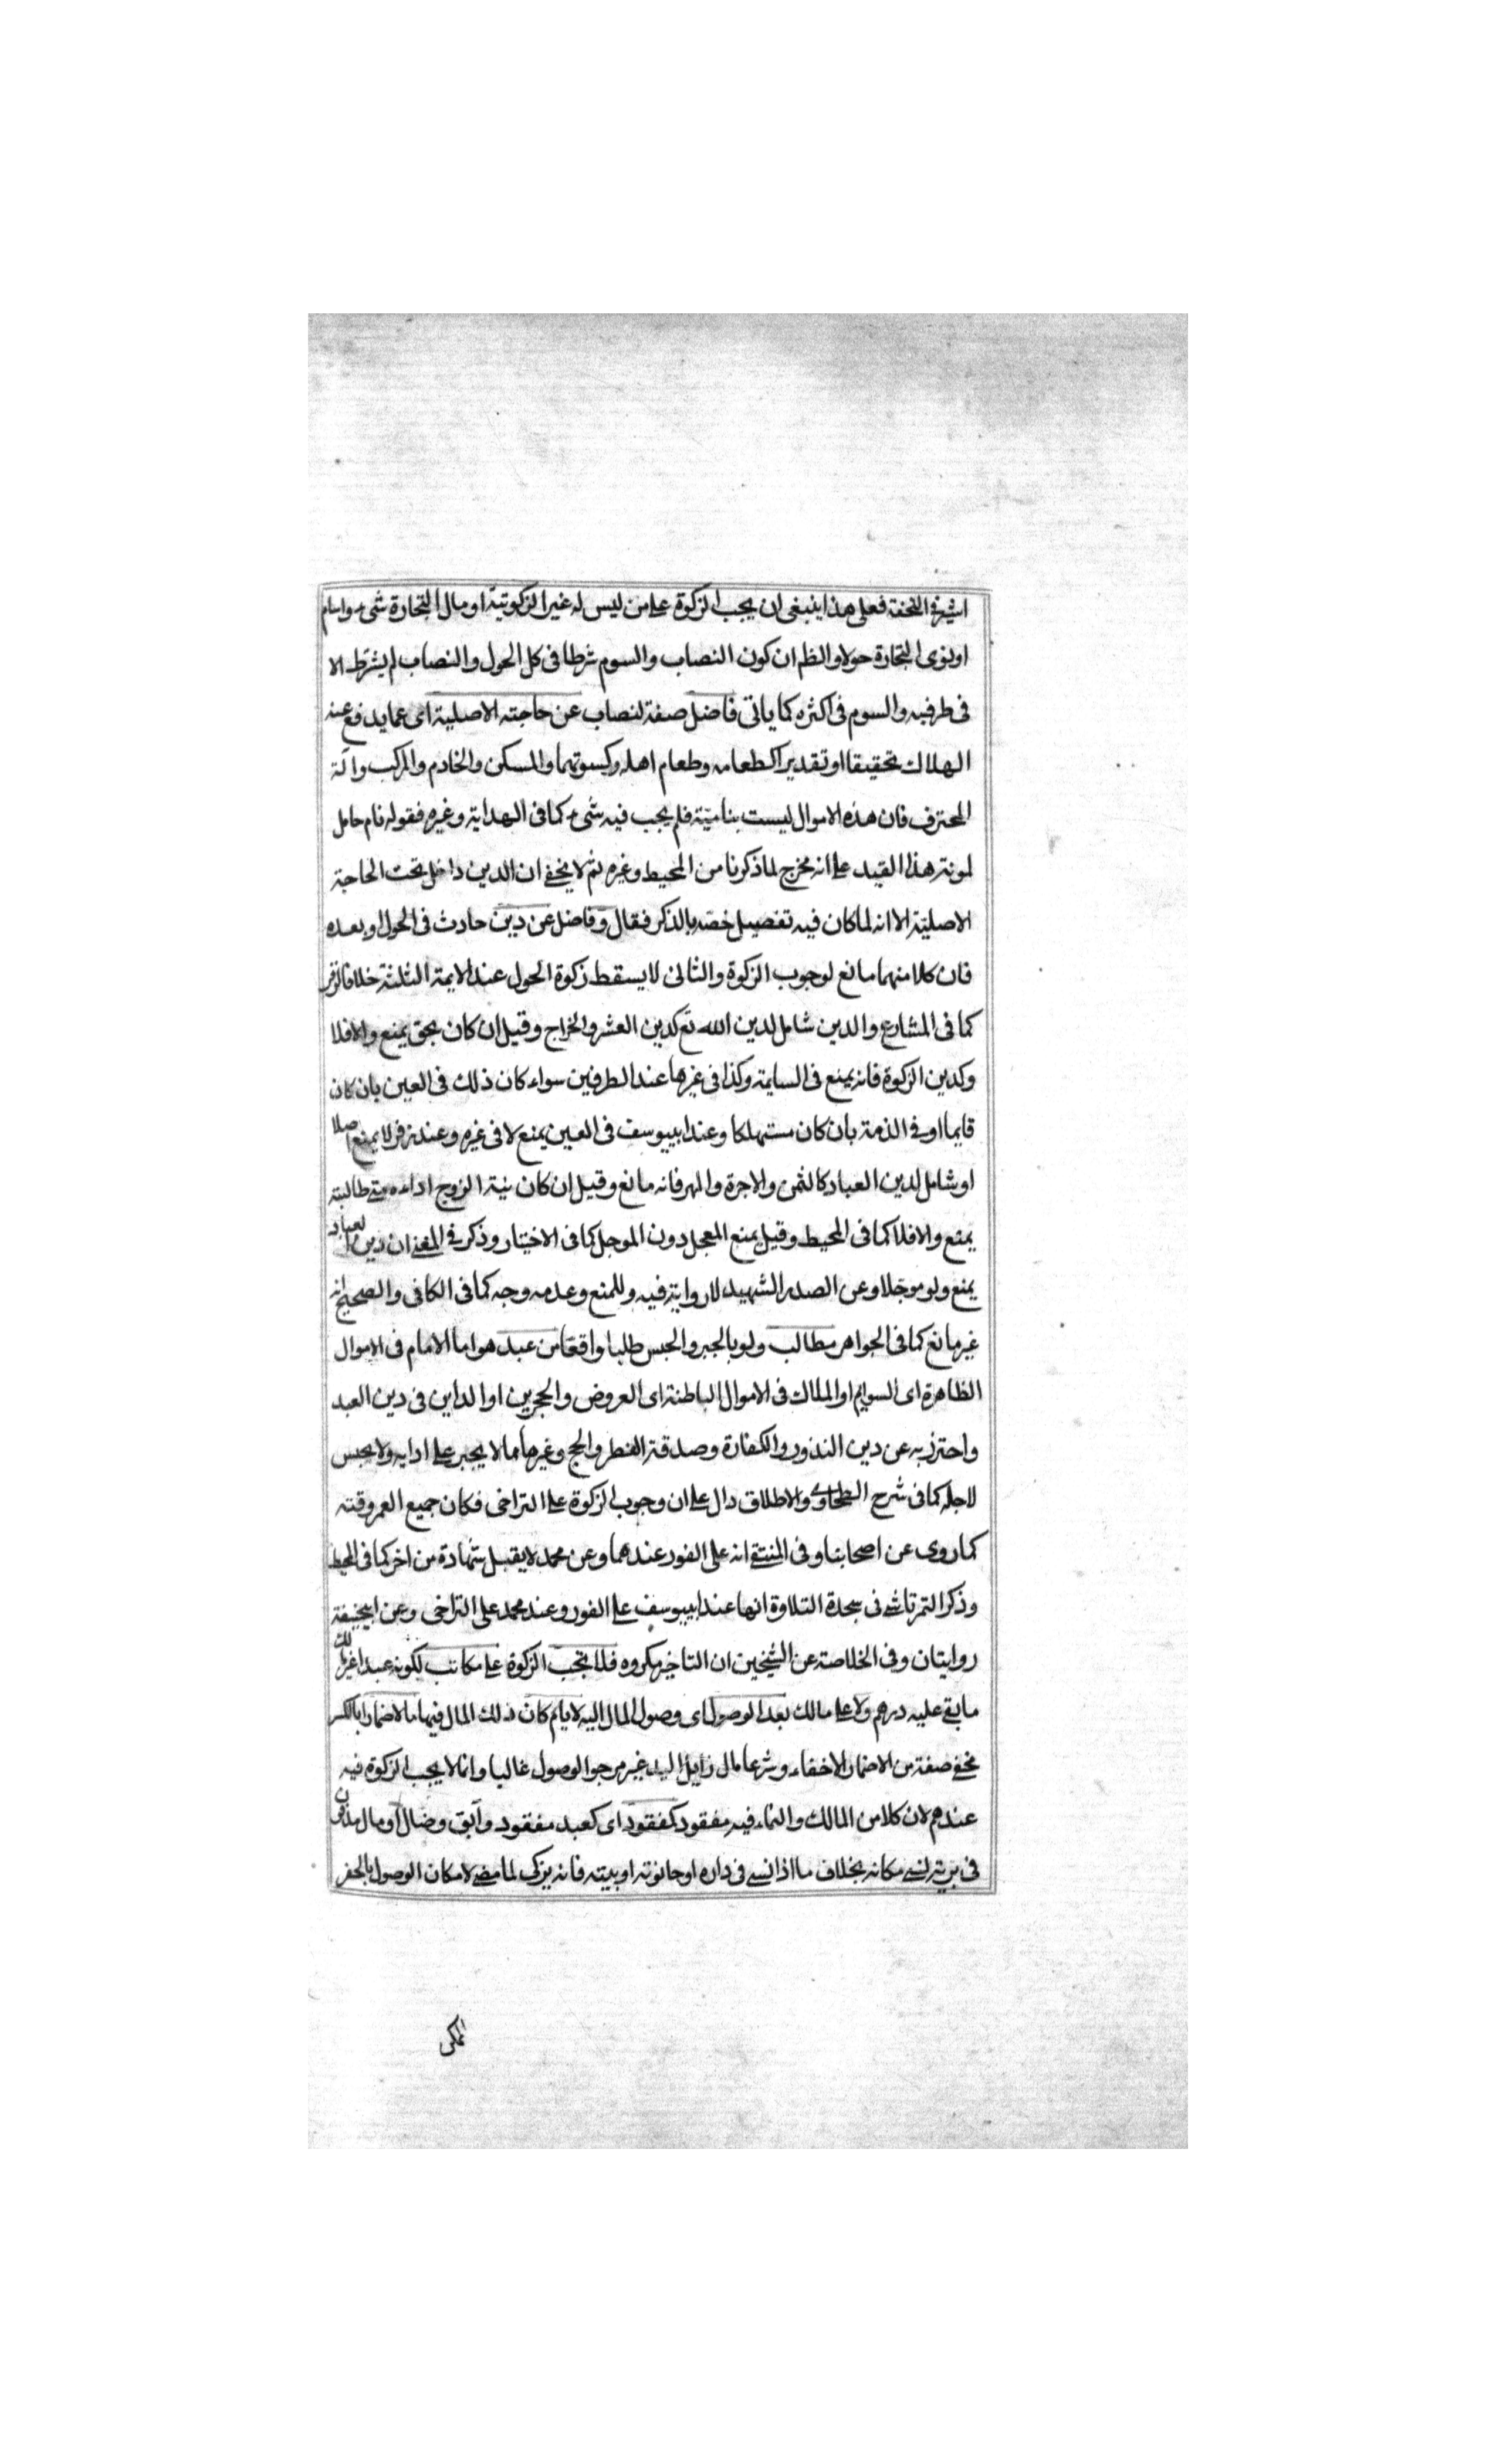 اشير في التحفة فعلى هذا ينبغى ان يجب الزكوة على من ليس له غير الزكوتية او مال التجارة شىء واسام
او نوى التجارة حولا والظم ان كون النصاب والسوم شرطا فى كل الحول والنصاب لم يشترط الا
فى طرفيه والسوم فى اكثره كما ياتى فاضل صفة لنصاب عن حاجته الاصلية اى عما يدفع عنه
الهلاك تحقيقا او تقديرا كطعامه وطعام اهله وكسوتهما والمسكن والخادم والمركب وآلة
المحترف فان هذه الاموال ليست بنامية فلم يجب فيه شىء كما فى الهداية وغيره فقوله نام حامل
لمونة هذا القيد على انه مخرج لما ذكرنا من المحيط وغيره ثم لا يخفى ان الدين داخل تحت الحاجة
الاصلية الا انه لما كان فيه تفصيل خصه بالذكر فقال وفاضل عن دين حادث فى الحول او بعده
فان كلا منهما مانع لوجوب الزكوة والثانى لا يسقط زكوة الحول عند الايمة الثلثة خلافا لزفر
كما فى المشارع والدين شامل لدين الله تع كدين العشر والخراج وقيل ان كان بحق يمنع والا فلا
وكدين الزكوة فانه يمنع فى السايمة وكذا فى غيرها عند الطرفين سواء كان ذلك فى العين بان كان
قايما او فى الذمة بان كان مستهلكا وعند ابيوسف فى العين يمنع لا فى غيره وعند زفر لا يمنع اصلا
او شامل لدين العباد كالثمن والاجرة والمهر فانه مانع وقيل ان كان نية الزوج اداءه متى طالبته
يمنع والا فلا كما فى المحيط وقيل يمنع المعجل دون الموجل كما فى الاختيار وذكر فى المغنى ان دين العباد
يمنع ولو موجلا وعن الصدر الشهيد لا رواية فيه وللمنع وعدمه وجه كما فى الكافى والصحيح انه
غير مانع كما فى الجواهر مطالب ولو بالجبر والحبس طلبا واقعا من عبد هو اما الامام فى الاموال
الظاهرة اى السوايم او الملاك فى الاموال الباطنة اى العروض والحجرين او الداين فى دين العبد
واحترز به عن دين النذور والكفارة وصدقة الفطر والحج وغيرها مما لا يجبر على ادايه ولا يحبس
لاجله كما فى شرح الطحاوى والاطلاق دال على ان وجوب الزكوة على التراخى فكان جميع العمر وقته
كما روى عن اصحابنا وفى المنتقى انه على الفور عندهما وعن محمد لا يقبل شهادة من اخر كما فى المحيط
وذكر التمرتاشى فى سجدة التلاوة انها عند ابيوسف على الفور وعند محمد على التراخى وعن ابيحنيفة
روايتان وفى الخلاصة عن الشيخين ان التاخير مكروه فلا تجب الزكوة على مكاتب لكونه عبدا غير مالك
ما بقى عليه درهم ولا على مالك بعد الوصول اى وصول المال اليه لايام كان ذلك المال فيها مالا ضمارا بالكسر
مخفى صفة من الاضمار الاخفاء وشرعا مال زايل اليد غير مرجو الوصول غالبا وانما لا يجب الزكوة فيه
عندهم لان كلا من المالك والنماء فيه مفقود كمفقود اى كعبد مفقود وآبق وضال او مال مدفون
فى برية نسى مكانه بخلاف ما اذا نسى فى داره او حانوته او بيته فانه يزكى لما مضى لامكان الوصول بالحفر